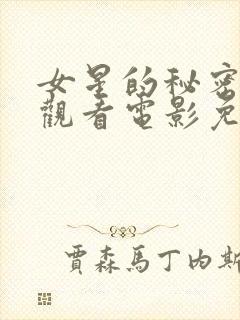 女星的秘密
觀看電影免
賈森馬丁內斯